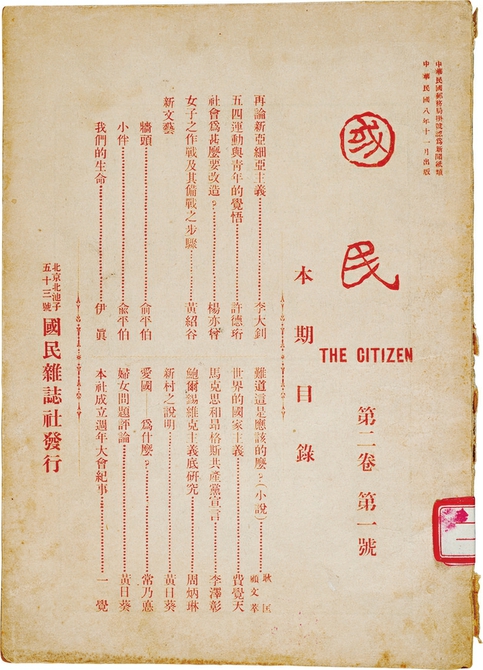 中華民國郵務局掛號認爲新聞紙類
中華民國八年十一月出版
國民
THE CITIZEN
第二卷 第一號
本期目錄
再論新亞細亞主義 李大釗
五四運動與靑年的覺悟 許德珩
社會爲甚麼要改造? 楊亦曾
女子之作戰及其備戰之步驟 黃紹谷
新文藝
牆頭 俞平伯
小伴 俞平伯
我們的生命 伊眞
難道這是應該的麼?(小說) 耿匡 顧文萃
世界的國家主義 費覺天
馬克思和昻格斯共產黨宣言 李澤彰
鮑爾錫維克主義底研究 周炳琳
新村之說明 黃日葵
愛國 爲什麼? 常乃悳
婦女問題評論 黃日葵
本社成立週年大會紀事 一覺
北京北池子
五十三號
國民雜誌社發行